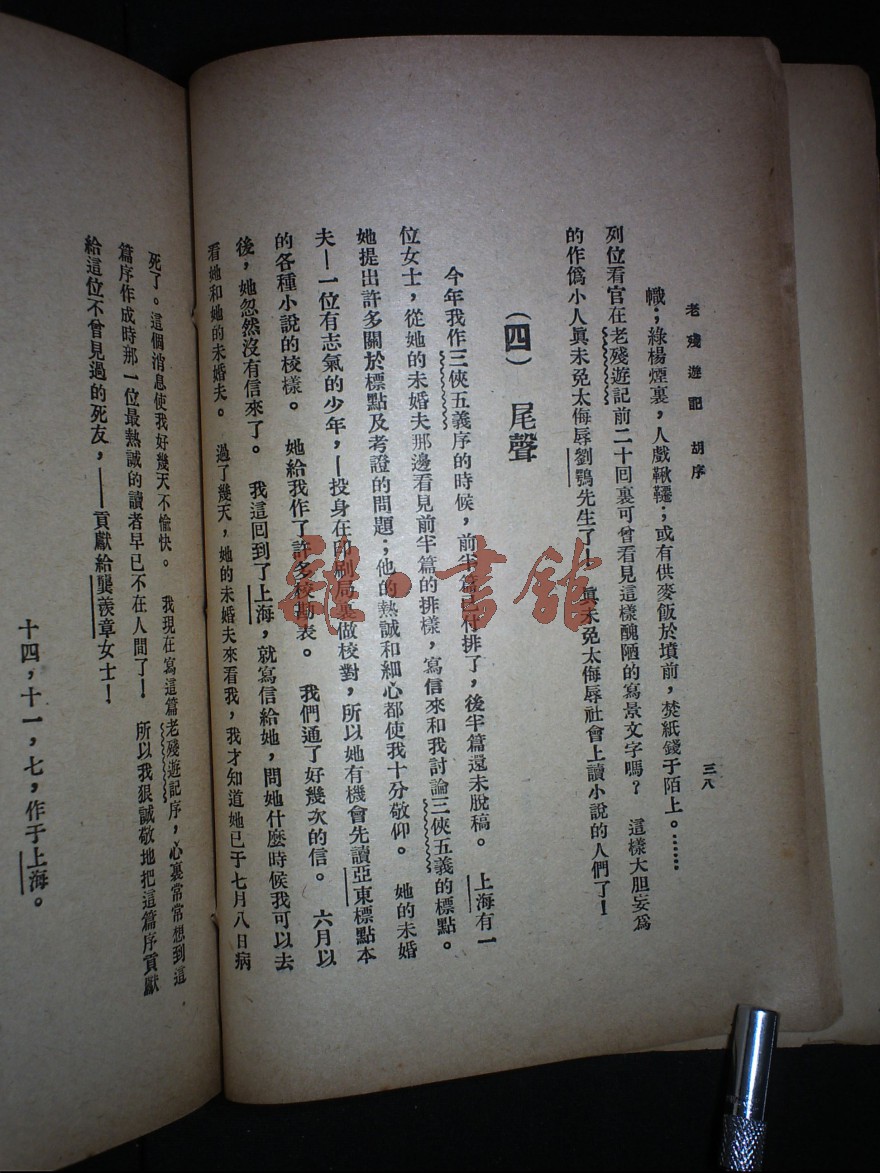 老殘遊記 胡序
三八
幟；綠楊煙裏，人戲鞦韆；或有供麥飯於墳前，焚紙錢于陌上。……
列位看官在老殘遊記前二十回裏可曾看見這樣醜陋的寫景文字嗎？ 這樣大胆妄爲
的作僞小人眞未免太侮辱劉鶚先生了！ 眞未免太侮辱社會上讀小說的人們了！
(四) 尾聲
今年我作三俠五義序的時候，前半篇已付排了，後半篇還未脫稿。 上海有一
位女士，從她的未婚夫那邊看見前半篇的排樣，寫信來和我討論三俠五義的標點。
她提出許多關於標點及考證的問題；他的熱誠和細心都使我十分敬仰。 她的未婚
夫—一位有志氣的少年，—投身在印刷局裏做校對，所以她有機會先讀亞東標點本
的各種小說的校樣。 她給我作了許多校勘表。 我們通了好幾次的信。 六月以
後，她忽然沒有信來了。 我這回到了上海，就寫信給她，問她什麼時候我可以去
看她和她的未婚夫。 過了幾天，她的未婚夫來看我，我才知道她已于七月八日病
死了。這個消息使我好幾天不愉快。 我現在寫這篇老殘遊記序，心裏常常想到這
篇序作成時那一位最熱誠的讀者早已不在人間了！ 所以我狠誠敬地把這篇序貢獻
給這位不曾見過的死友，——貢獻給龔羨章女士！
十四，十一，七，作于上海。
龍·書館